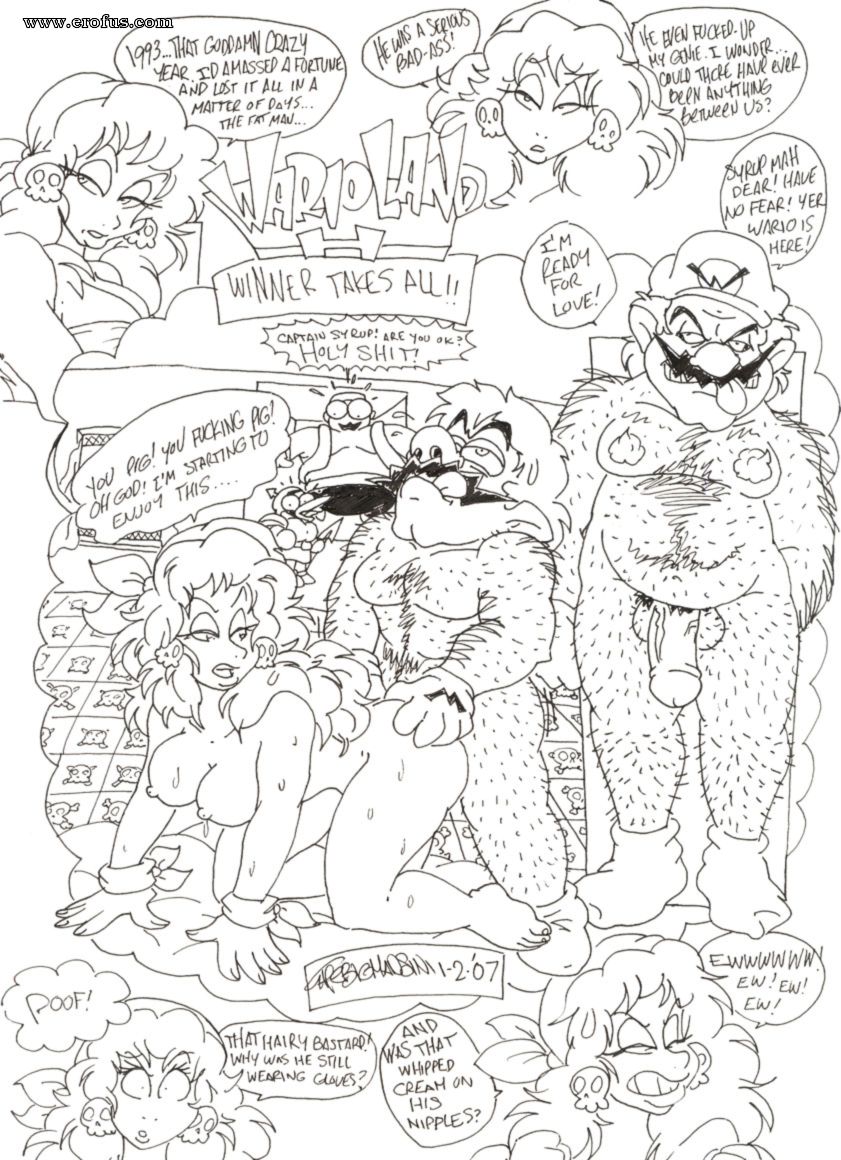 www.erofus.com
1993...THAT GODDAMN CRAZY
YEAR. I'D AMASSED A FORTUNE
AND LOST IT ALL IN A
MATTER OF DAYS...
THE FAT MAN...
HE WAS A SERIOUS
BAD-ASS!
HE EVEN FUCKED-UP
MY GENIE. I WONDER...
COULD THERE HAVE EVER
BEEN ANYTHING
BETWEEN US?
WARIO LAND
H
WINNER TAKES ALL!!
SYRUP MAH
DEAR! HAVE
NO FEAR! YER
WARIO IS
HERE!
I'M
READY
FOR
LOVE!
CAPTAIN SYRUP! ARE YOU OK?
HOLY SHIT!
YOU PIG! YOU FUCKING PIG!
OH GOD! I'M STARTING TO
ENJOY THIS....
1-2-'07
POOF!
THAT HAIRY BASTARD!
WHY WAS HE STILL
WEARING GLOVES?
AND
WAS THAT
WHIPPED
CREAM ON
HIS
NIPPLES?
EWWWWWW!
EW! EW!
EW!